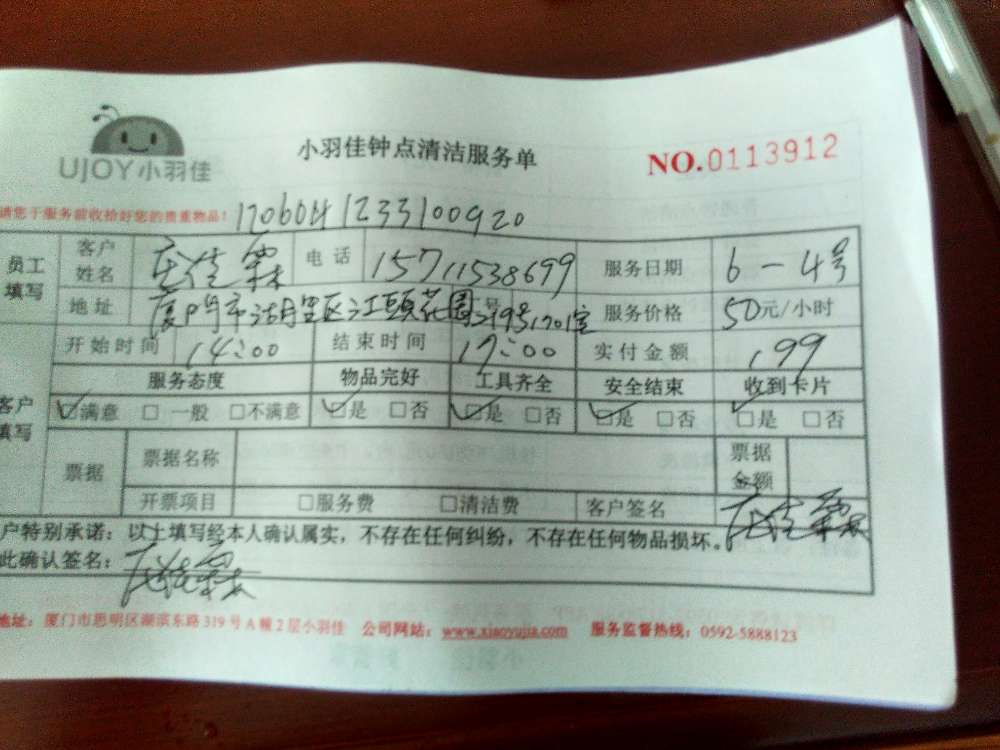 UJOY小羽佳
小羽佳钟点清洁服务单
NO.0113912
请您于服务前收拾好您的贵重物品!
1706041233100920
员工填写 客户姓名 庄佳霖 电话 15711538699 服务日期 6-4号
地址 厦门市湖里区江頭花園319号1701室 服务价格 50元/小时
开始时间 14:00 结束时间 17:00 实付金额 199
客户填写 服务态度 物品完好 工具齐全 安全结束 收到卡片
☑满意 □一般 □不满意 ☑是 □否 ☑是 □否 ☑是 □否 ☑是 □否
票据 票据名称 票据金额
开票项目 □服务费 □清洁费 客户签名 庄佳霖
户特别承诺:以上填写经本人确认属实,不存在任何纠纷,不存在任何物品损坏。
此确认签名: 庄佳霖
地址:厦门市思明区湖滨东路319号A幢2层小羽佳 公司网站:www.xiaoyujia.com 服务监督热线:0592-5888123